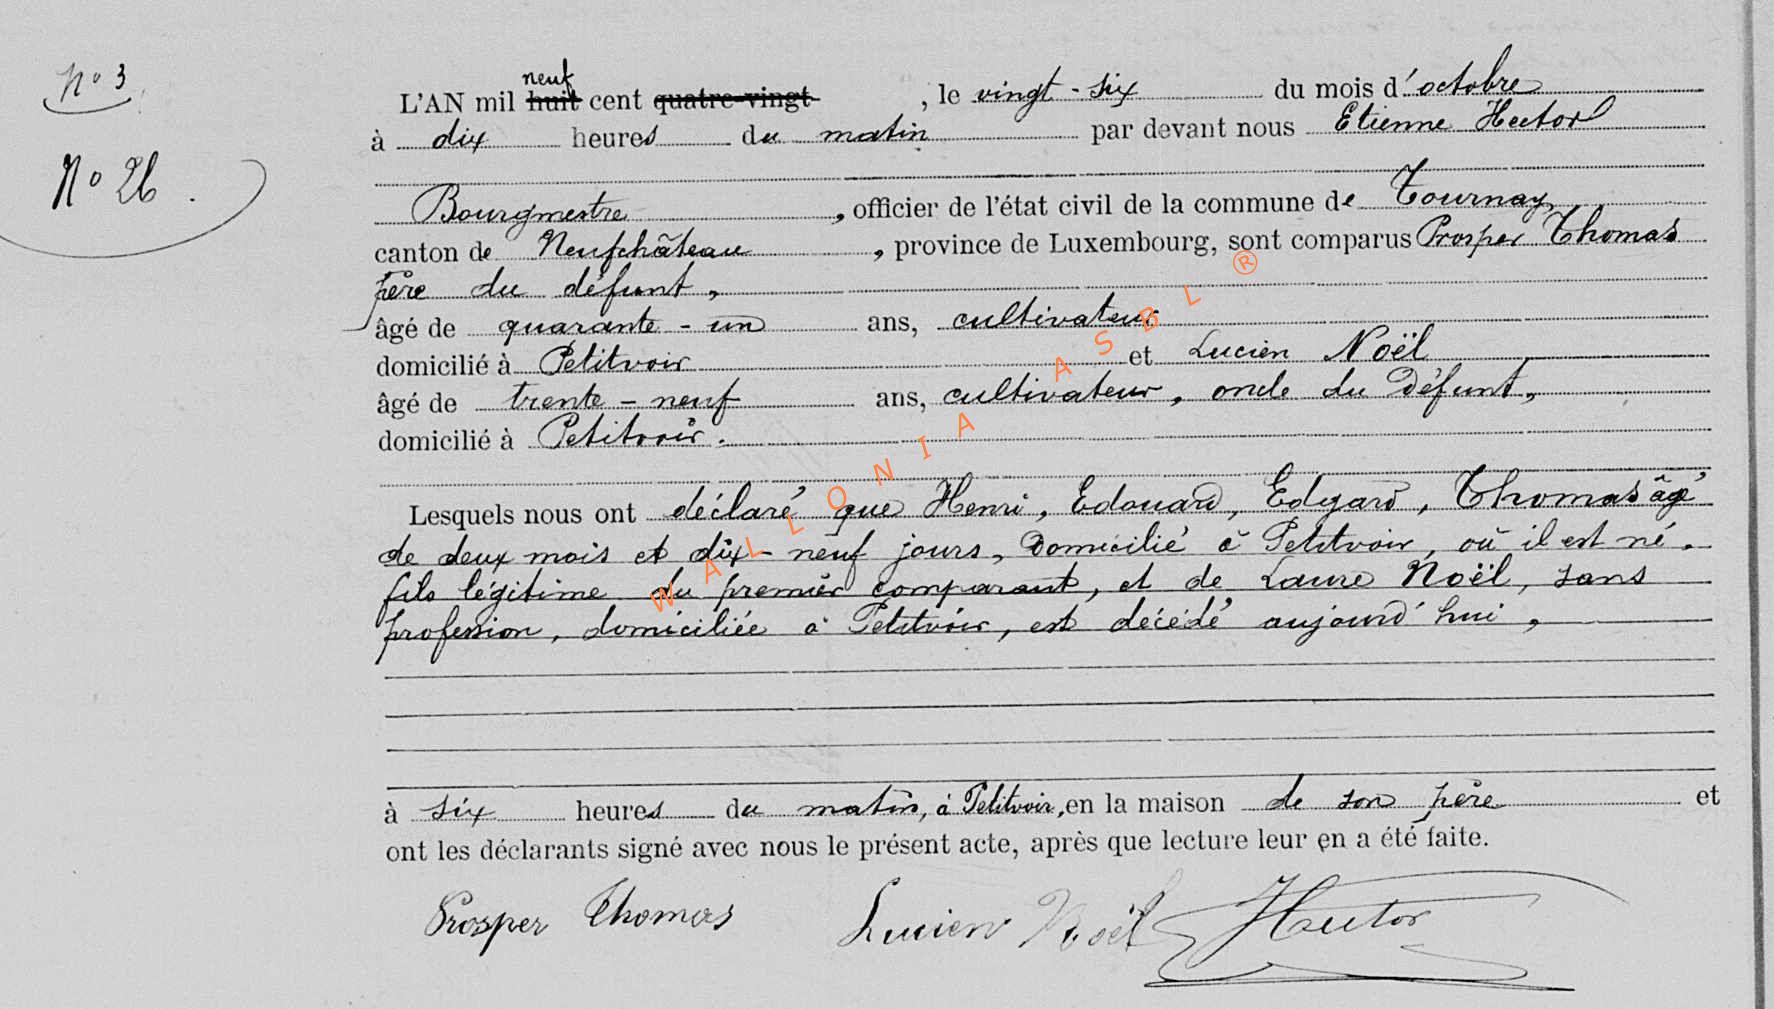 N° 3
N° 26.
L'AN mil huit neuf cent quatre-vingt, le vingt-six du mois d'octobre
à dix heures du matin par devant nous Etienne Hector
Bourgmestre, officier de l'état civil de la commune de Tournay,
canton de Neufchâteau, province de Luxembourg, sont comparus Prosper Thomas
père du défunt,
âgé de quarante-un ans, cultivateur
domicilié à Petitvoir et Lucien Noël
âgé de trente-neuf ans, cultivateur, oncle du Défunt,
domicilié à Petitvoir.
Lesquels nous ont déclaré que Henri, Edouard, Edgard, Thomas âgé
de deux mois et dix-neuf jours, Domicilié à Petitvoir, où il est né,
fils légitime du premier comparant, et de Laure Noël, sans
profession, domiciliée à Petitvoir, est décédé aujourd'hui,
à six heures du matin, à Petitvoir, en la maison de son père et
ont les déclarants signé avec nous le présent acte, après que lecture leur en a été faite.
Prosper Thomas Lucien Noël Hector
WALLONIA ASBL ®